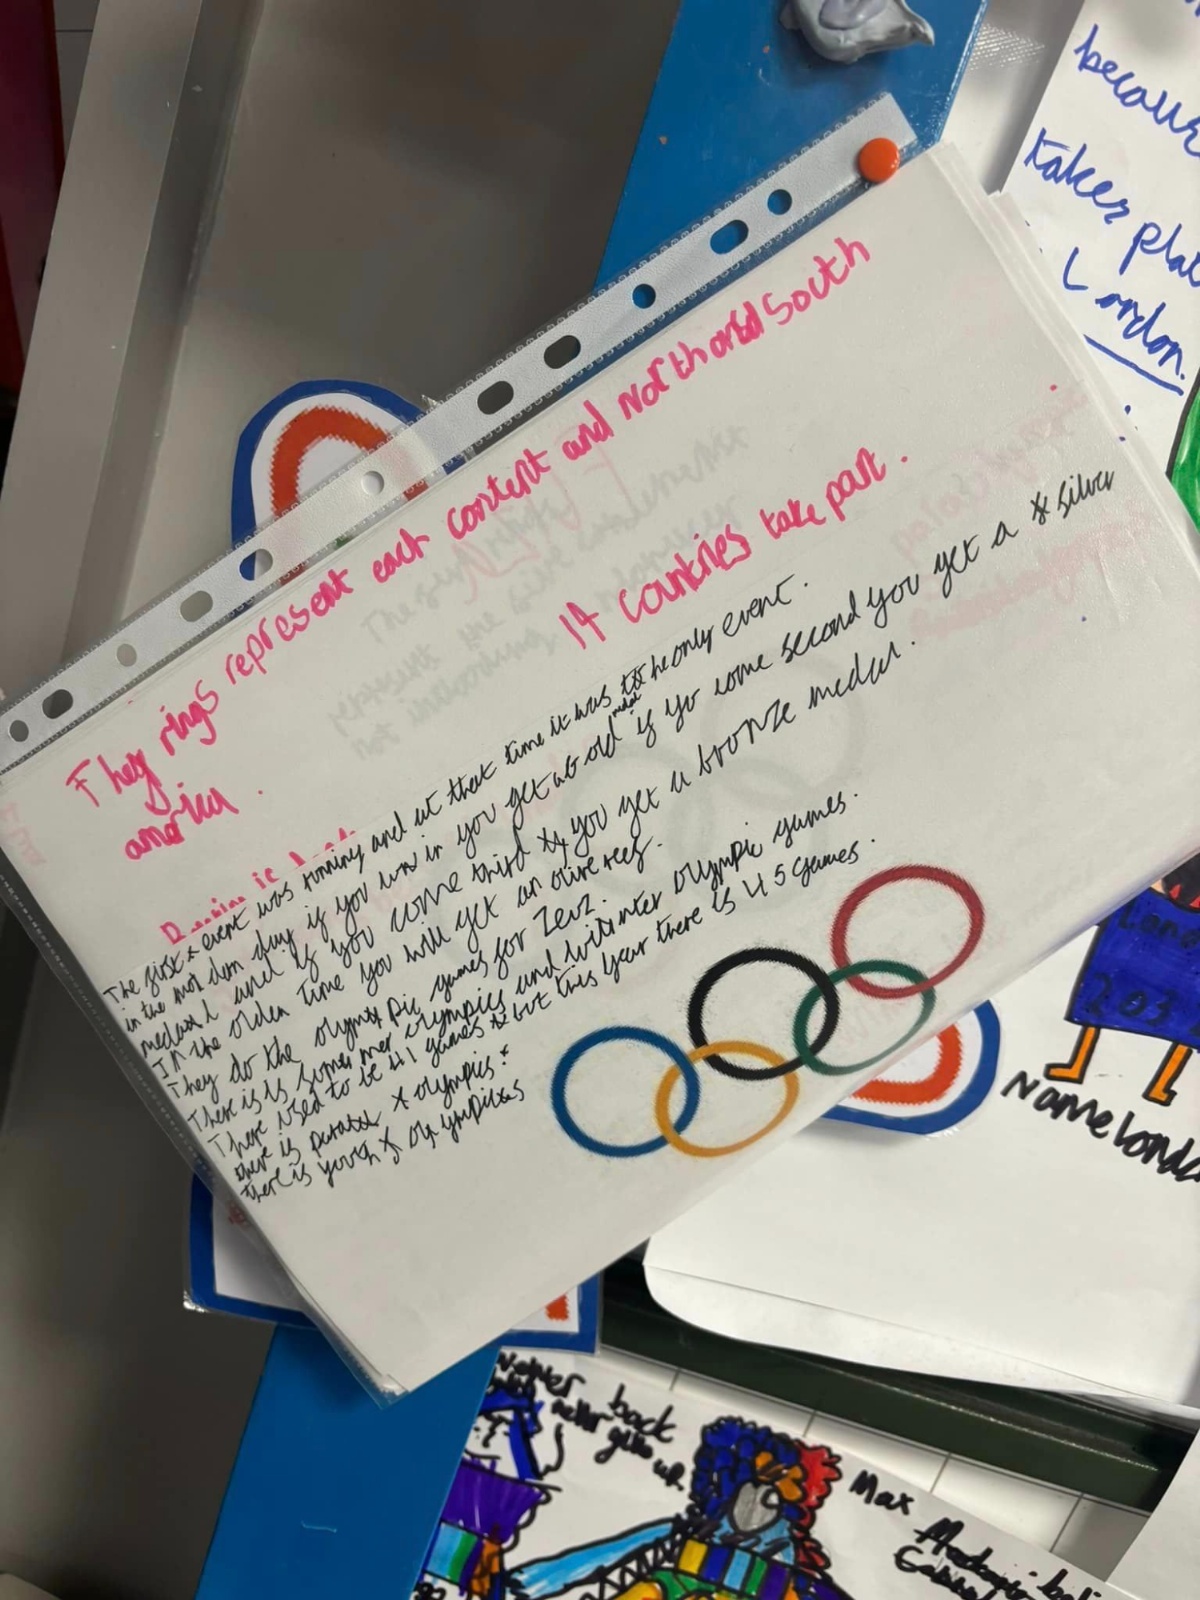 They rings represent each contient and North and South
america.
14 countries take part.
The first event was running and at that time it was the only event.
in the mordern day if you win you get a Gold medal if yo come second you get a silver
medeal and if you come third you get a bronze medal.
In the olden time you will get an olive reef.
They do the olympic games for Zeuz.
There is summer olympics and winter olympic games.
There used to be 41 games but this year there is 45 games.
there is para olympics.
there is youth olympices
becaus
takes plac
London.
203
Name Londo
never back
never give up.
Max